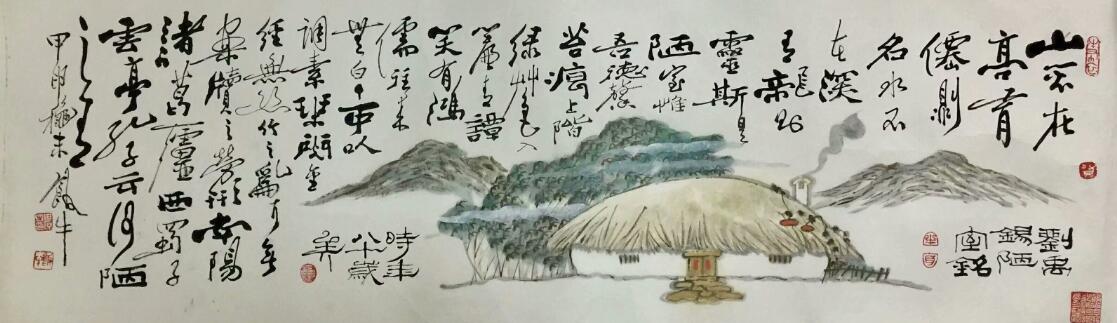 山不在
高有
僊則
名水不
在深
有龍則
靈斯是
陋室惟
吾德馨
苔痕上階
绿艸色入
簾青譚
笑有鴻
儒往来
無白丁可以
調素琴閱金
經無絲竹之亂耳無
案牘之勞形南陽
諸葛廬西蜀子
雲亭孔子云何陋
之有
甲申穐末 飯牛
時年
八十歲
矣
劉禹
錫陋
室銘